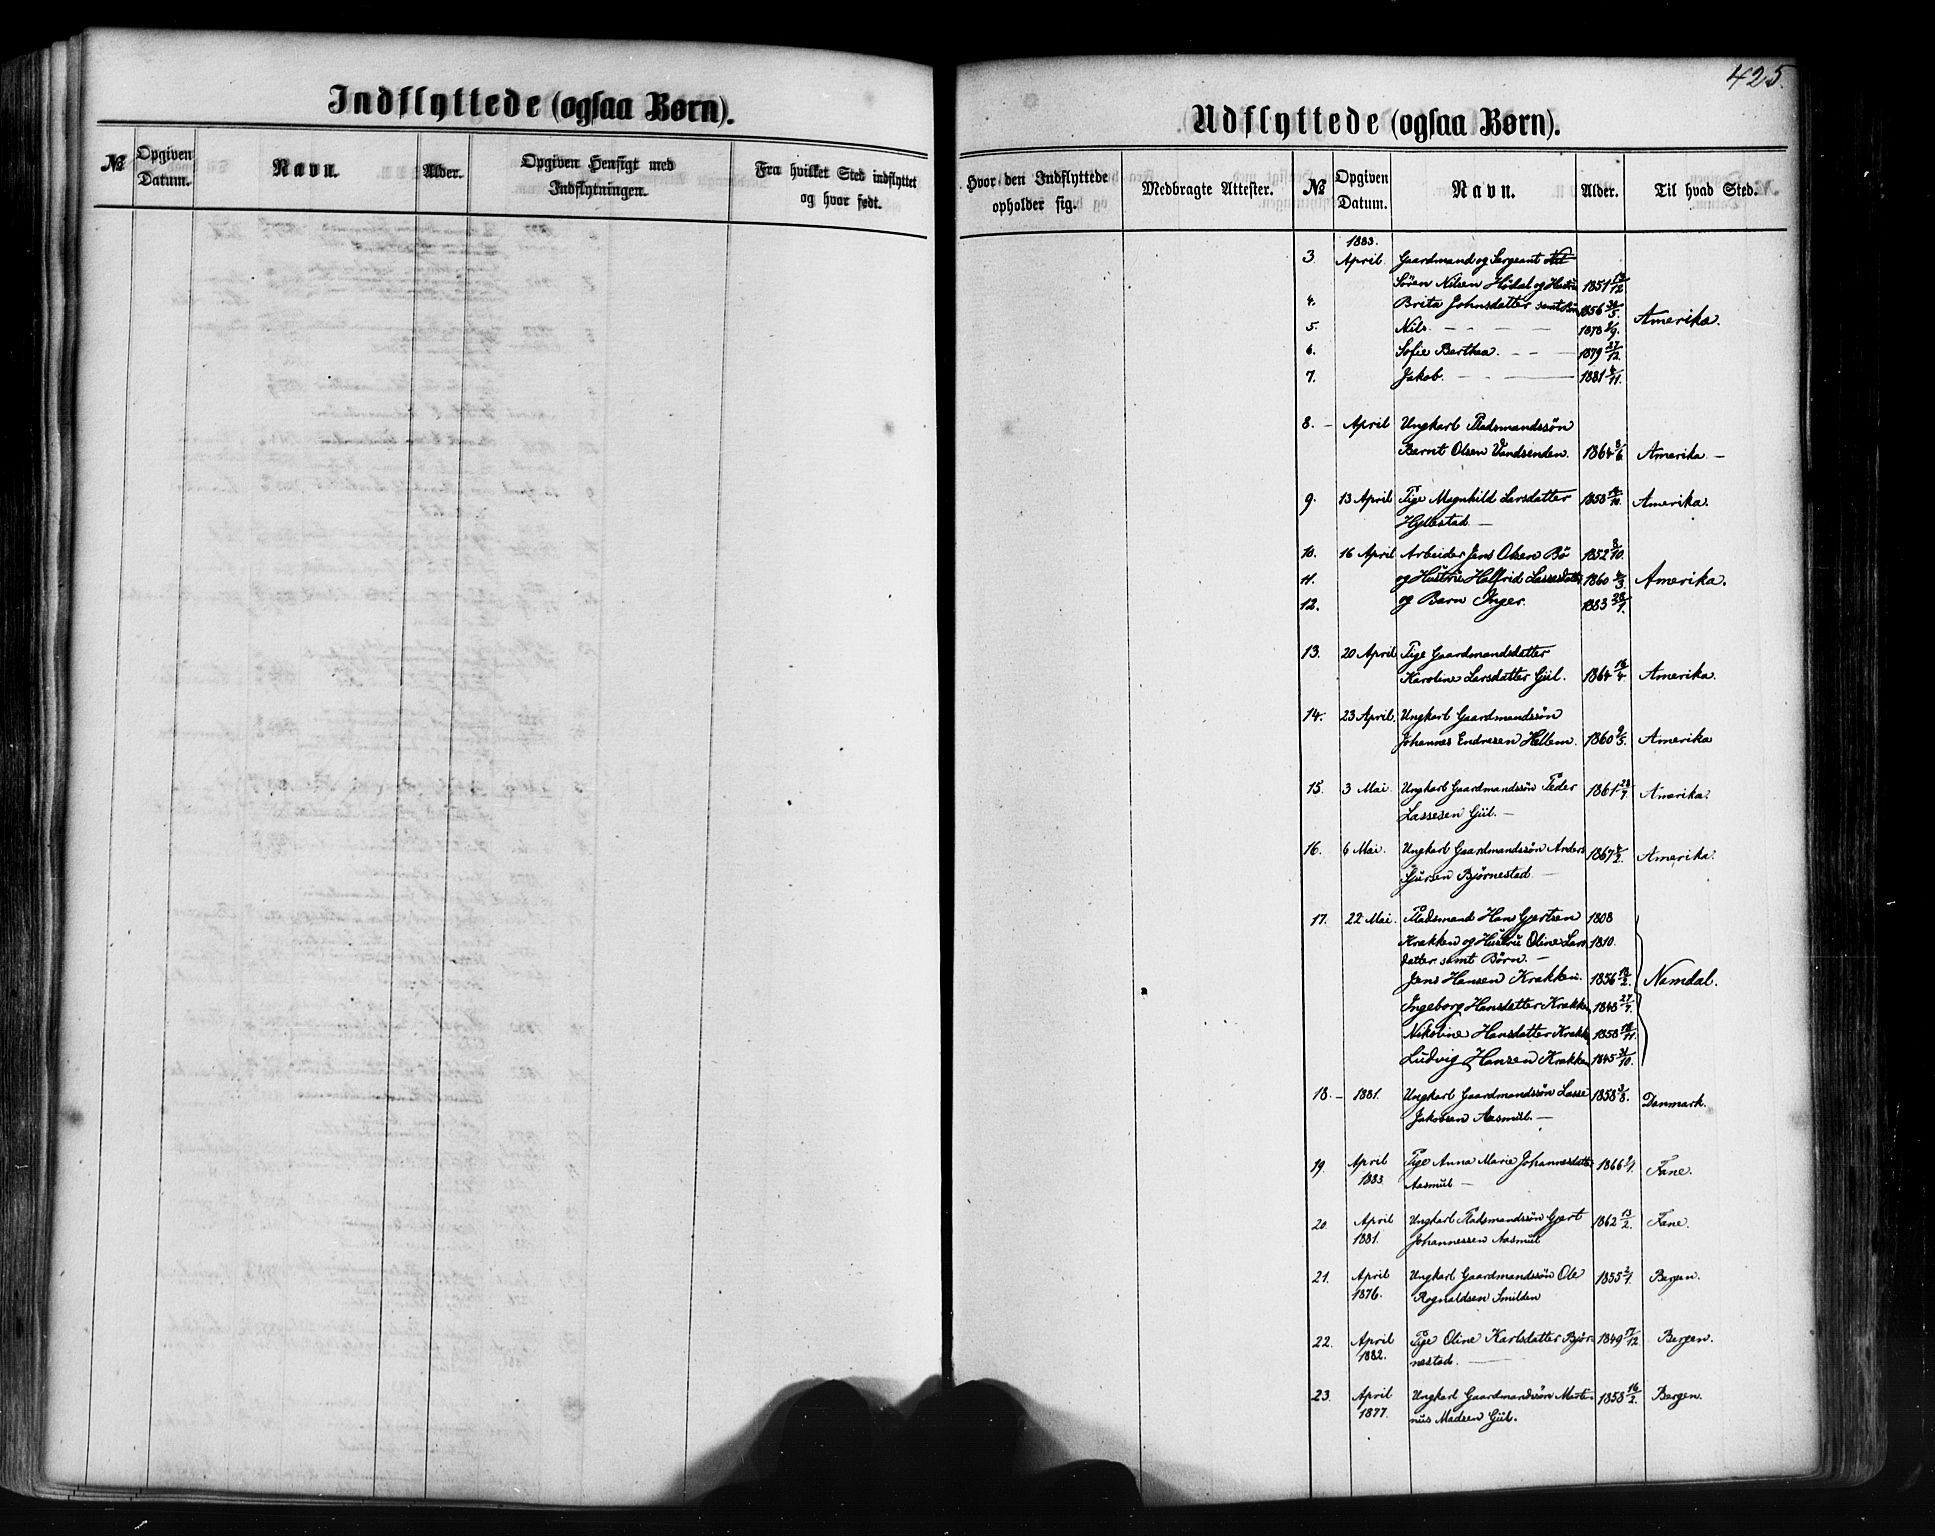 425.
Indflyttede (ogsaa Børn).
№
Opgiven Datum.
Navn.
Alder.
Opgiven Hensigt med Indflytningen.
Fra hvilket Sted indflyttet og hvor født.
Udflyttede (ogsaa Børn).
Hvor den Indflyttede opholder sig.
Medbragte Attester.
№
Opgiven Datum.
Navn.
Alder.
Til hvad Sted.
1883.
3. April Gaardmand og Sergeant
Søren Nilsen Hødal og Hustru 1851 13/12
4. Brita Johnsdatter samt Børn 1856 /5. Amerika.
5. Nils. — — — 1878 /9.
6. Sofie Berthea. — — 1879 27/12.
7. Jakob. — — 1881 /11.
8. — April Ungkarl Pladsmandssøn
Bernt Olsen Vandsenden. 1864 8/6. Amerika. —
9. 13 April Pige Magnhild Larsdatter 1858 /10. Amerika.
Hyllestad —
10. 16 April Arbeider Jens Olsen Bø 1852 8/10.
11. og Hustru Halfrid Lassesdatter 1860 /3 Amerika.
12. og Barn Inger. 1883 28/1.
13. 20 April Pige Gaardmandsdatter
Karoline Larsdatter Gül. 1864 /4. Amerika.
14. 23 April. Ungkarl Gaardmandssøn
Johannes Endresen Hellem. 1860 9/5. Amerika
15. 3 Mai. Ungkarl Gaardmandssøn Peder 1861 28/7. Amerika.
Lassesen Gül. —
16. 6 Mai. Ungkarl Gaardmandssøn Anders 1867 /2. Amerika.
Sjursen Bjørnestad —
17. 22 Mai. Pladsmand Hans Gjertsen 1808
Krakken og Hustru Oline Lars- 1810.
datter samt Børn. —
Jens Hansen Krakken. 1856 18/2. Namdal.
Ingeborg Hansdatter Krakken 1848 27/7.
Nikoline Hansdatter Krakken 1858 /11.
Ludvig Hansen Krakken 1845 /10.
18. — 1881. Ungkarl Gaardmandssøn Lasse 1858 3/8. Danmark.
Jakobsen Aasmül. —
19. April Pige Anna Marie Johannesdatter 1866 /1. Fane.
1883. Aasmül —
20. April Ungkarl Pladsmandssøn Gjert 1862 13/2. Fane.
1881. Johannessen Aasmül
21. April Ungkarl Gaardmandssøn Ole 1855 2/1. Bergen.
1876. Rognaldsen Smilden
22. April Pige Oline Karlsdatter Bjør- 1849 17/12 Bergen.
1882. nestad. —
23. April Ungkarl Gaardmandssøn Marti- 1858 16/2. Bergen.
1877. nus Madsen Gül.